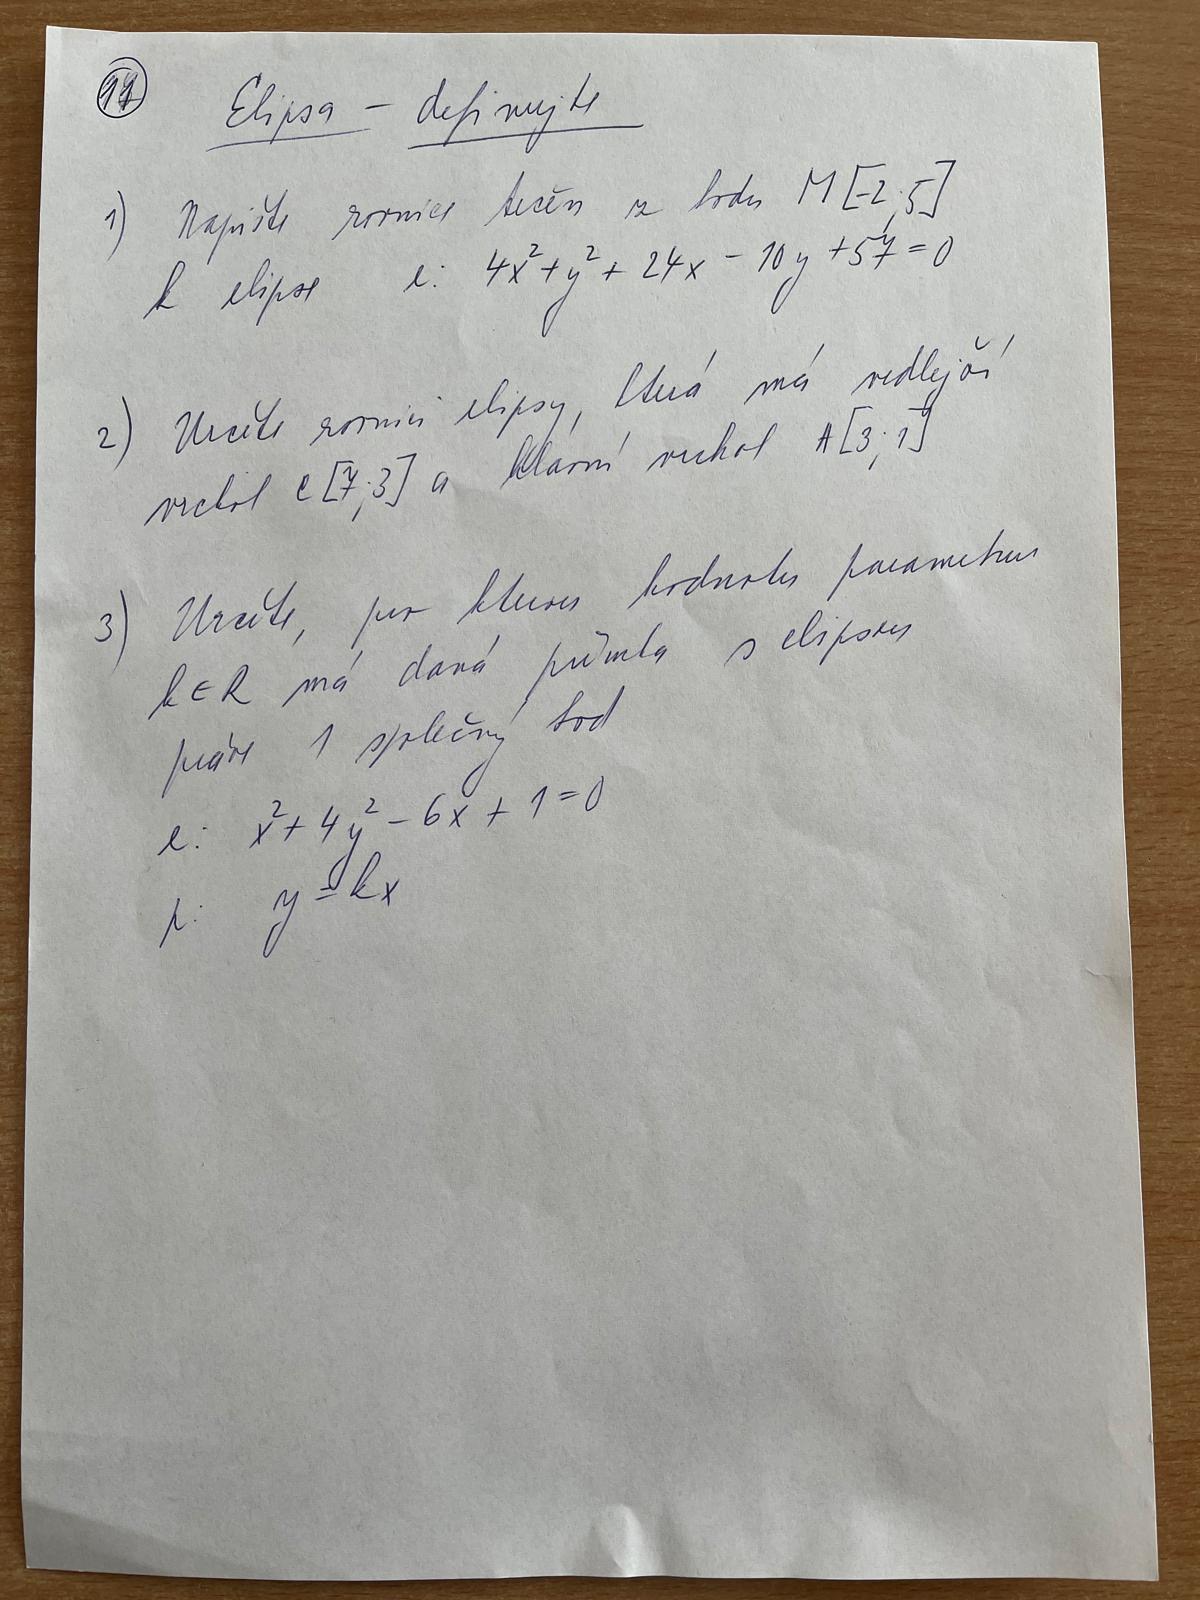 17
Elipsa - definujte
1) Napište rovnice tečen z bodu M[-2;5]
k elipse e: 4x²+y²+24x-10y+57=0
2) Určete rovnici elipsy, která má vedlejší
vrchol C[7;3] a hlavní vrchol A[3;1]
3) Určete, pro kterou hodnotu parametru
k∈R má daná přímka s elipsou
právě 1 společný bod
e: x²+4y²-6x+1=0
p: y=kx